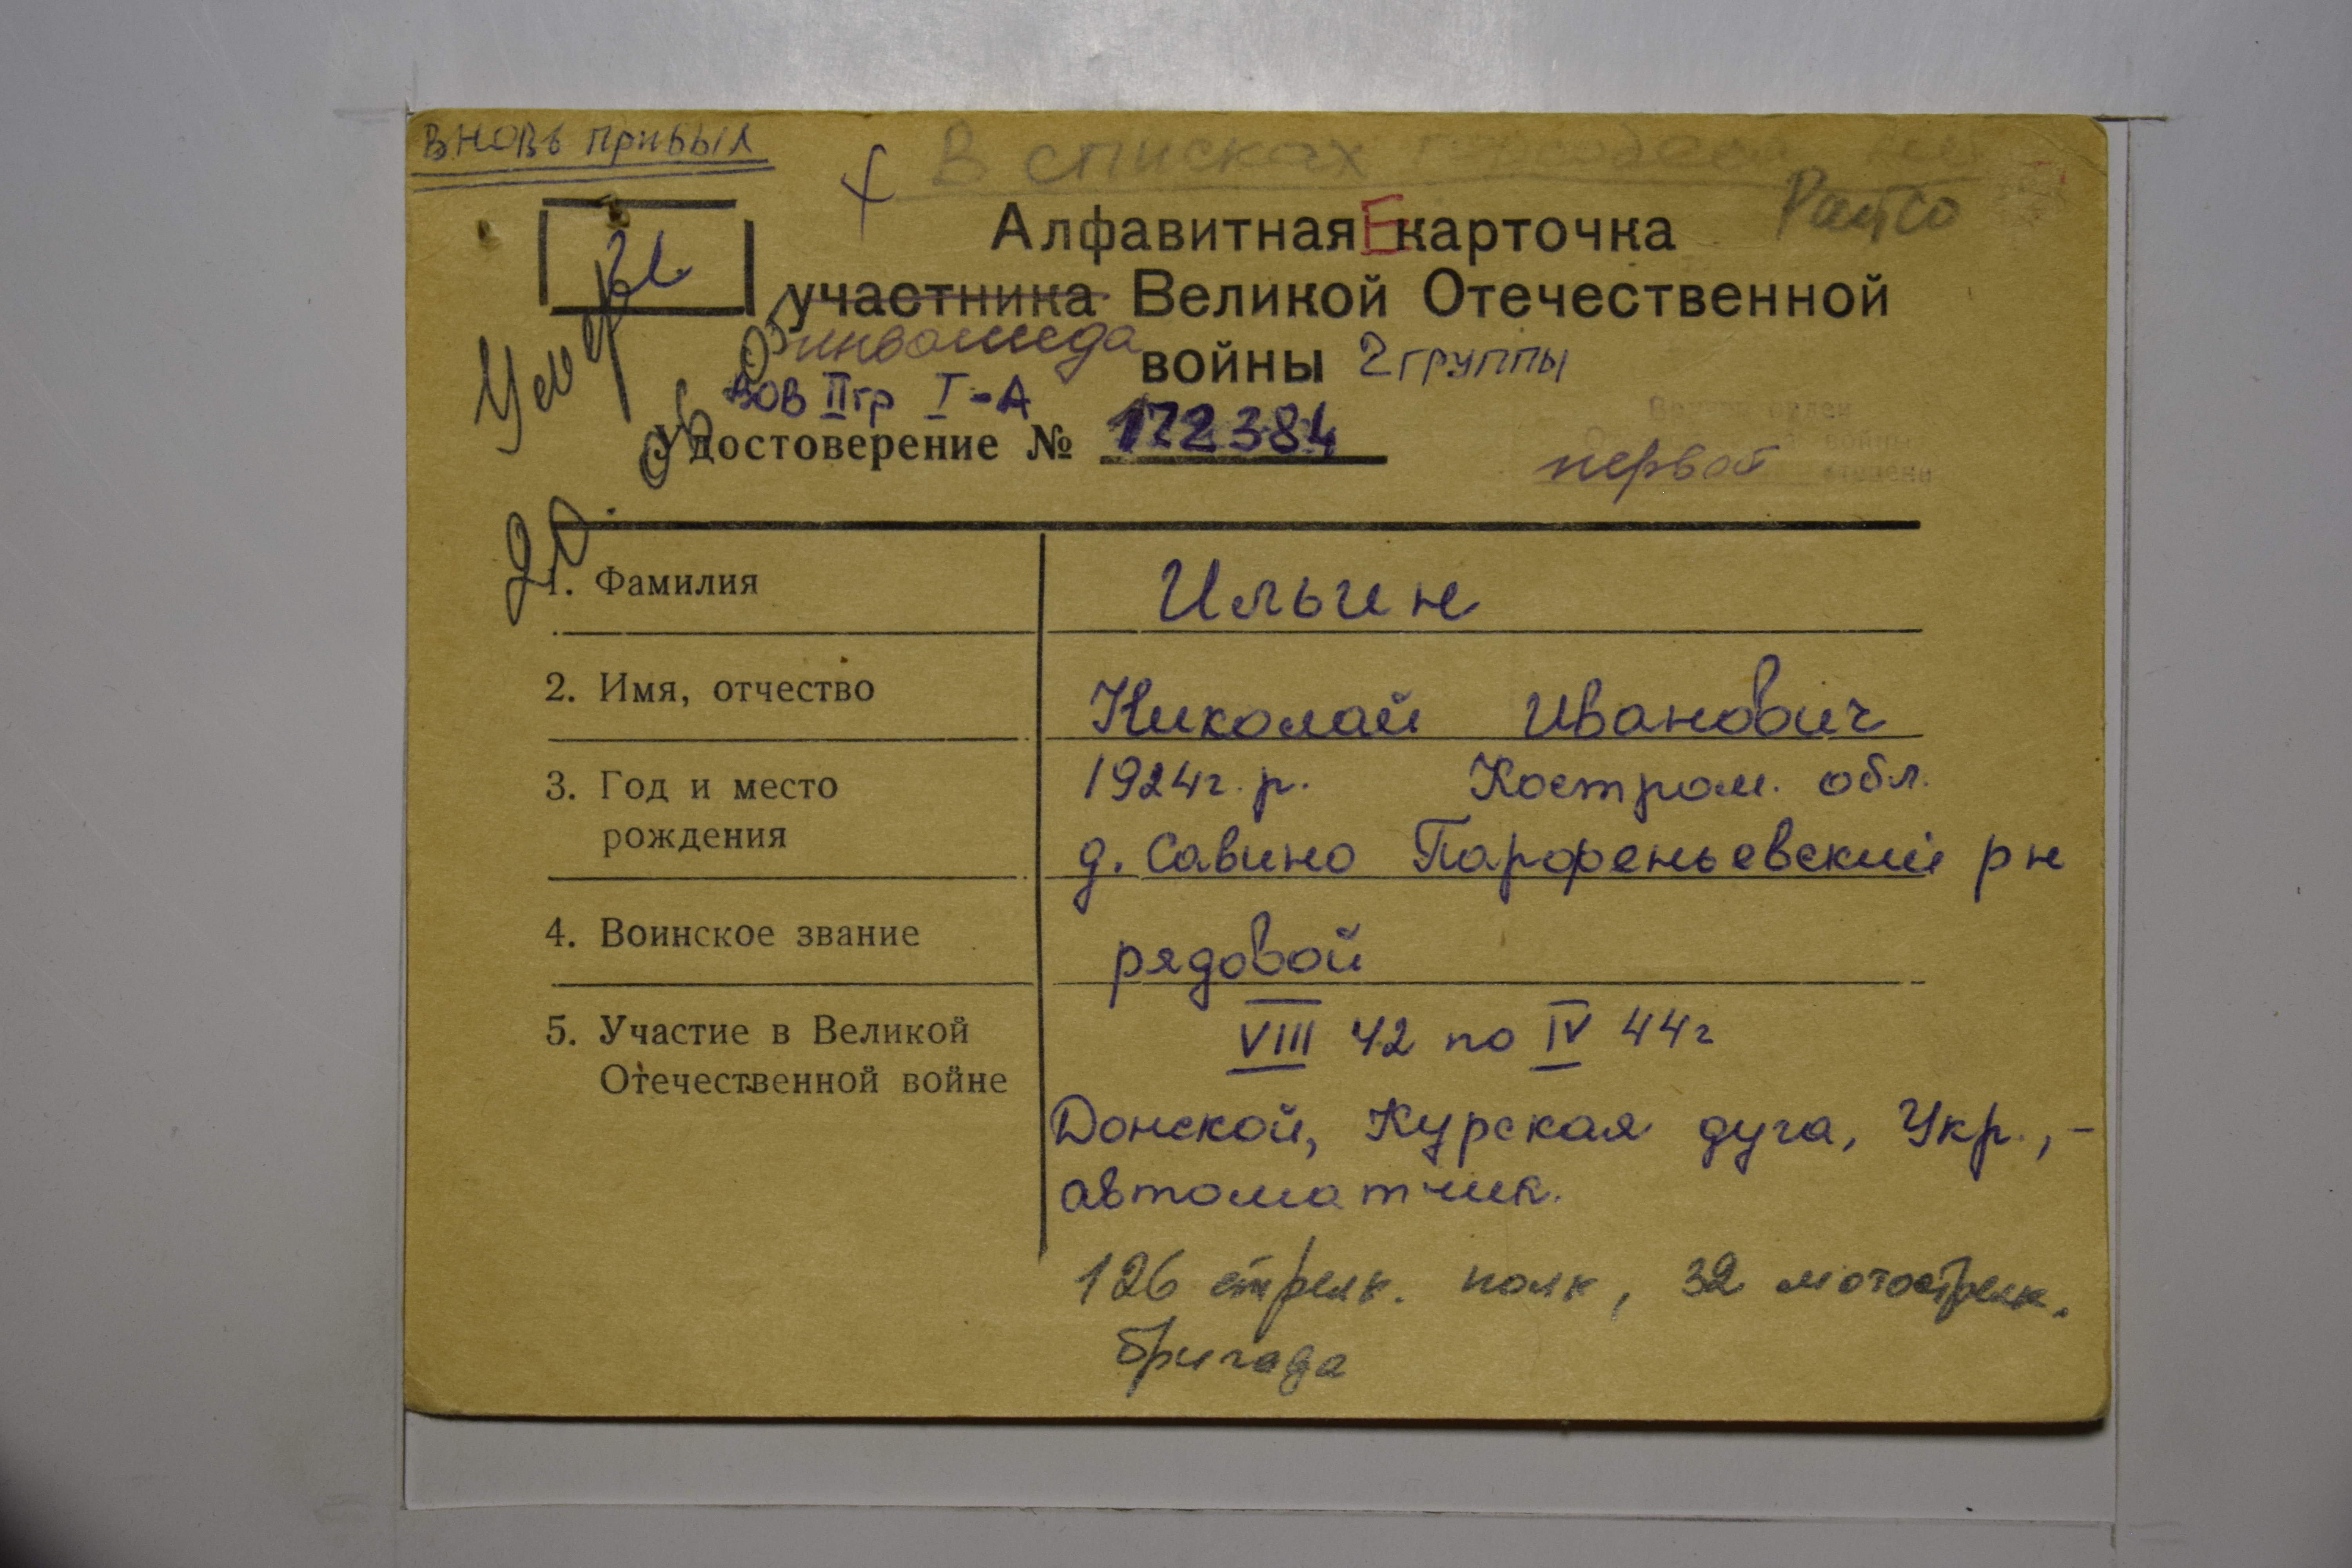 вновь прибыл
В списках
РайСО
И
Алфавитная карточка
Е
участника Великой Отечественной
инвалида
войны 2 группы
ВОВ II гр I-А
Удостоверение № 172384
Вручен орден
Отечественной войны
первой степени
Умер
20. 06. 05
1. Фамилия Ильин
2. Имя, отчество Николай Иванович
3. Год и место 1924г. р. Костром. обл.
рождения д. Савино Парфеньевский рн
4. Воинское звание рядовой
5. Участие в Великой VIII 42 по IV 44г
Отечественной войне
Донской, Курская дуга, Укр., -
автоматчик.
126 стрелк. полк, 32 мотострелк.
бригада